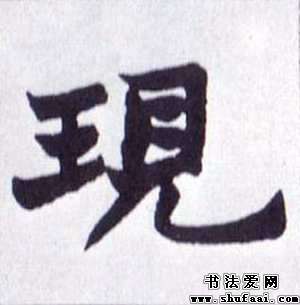 現
书法爱网
www.shufaai.com